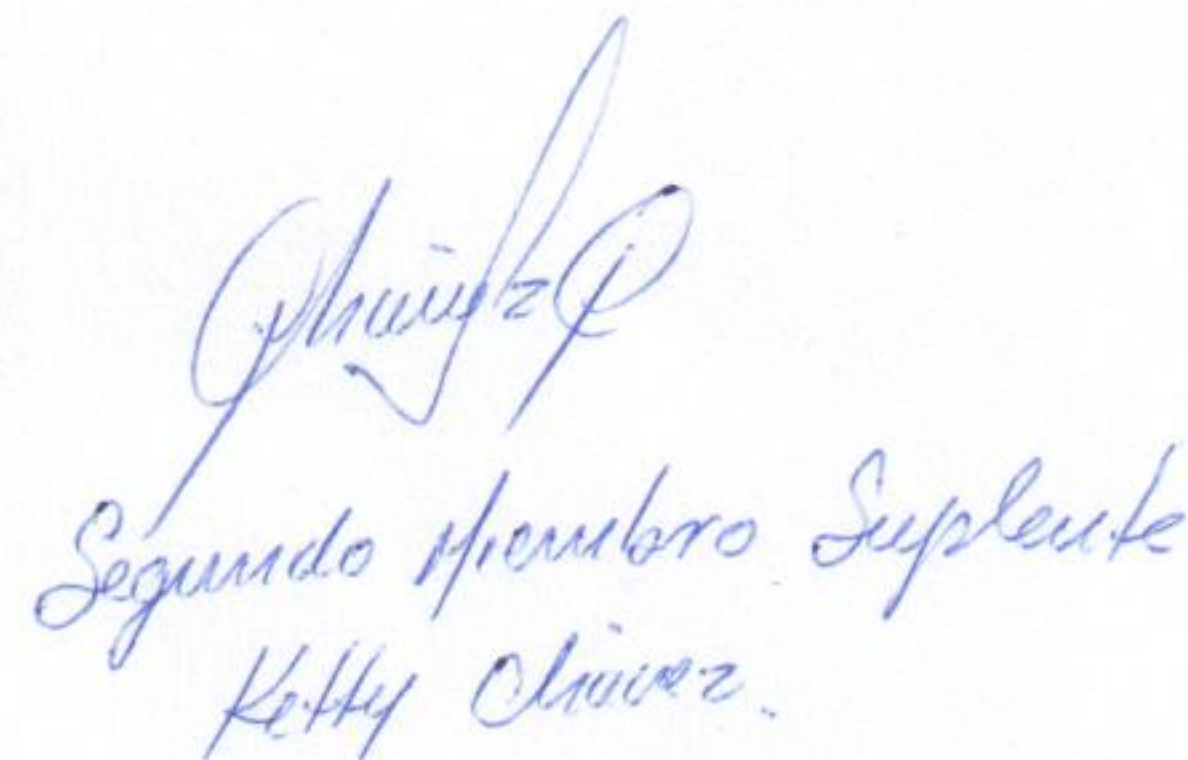 Segundo Miembro Suplente
Ketty Chávez.